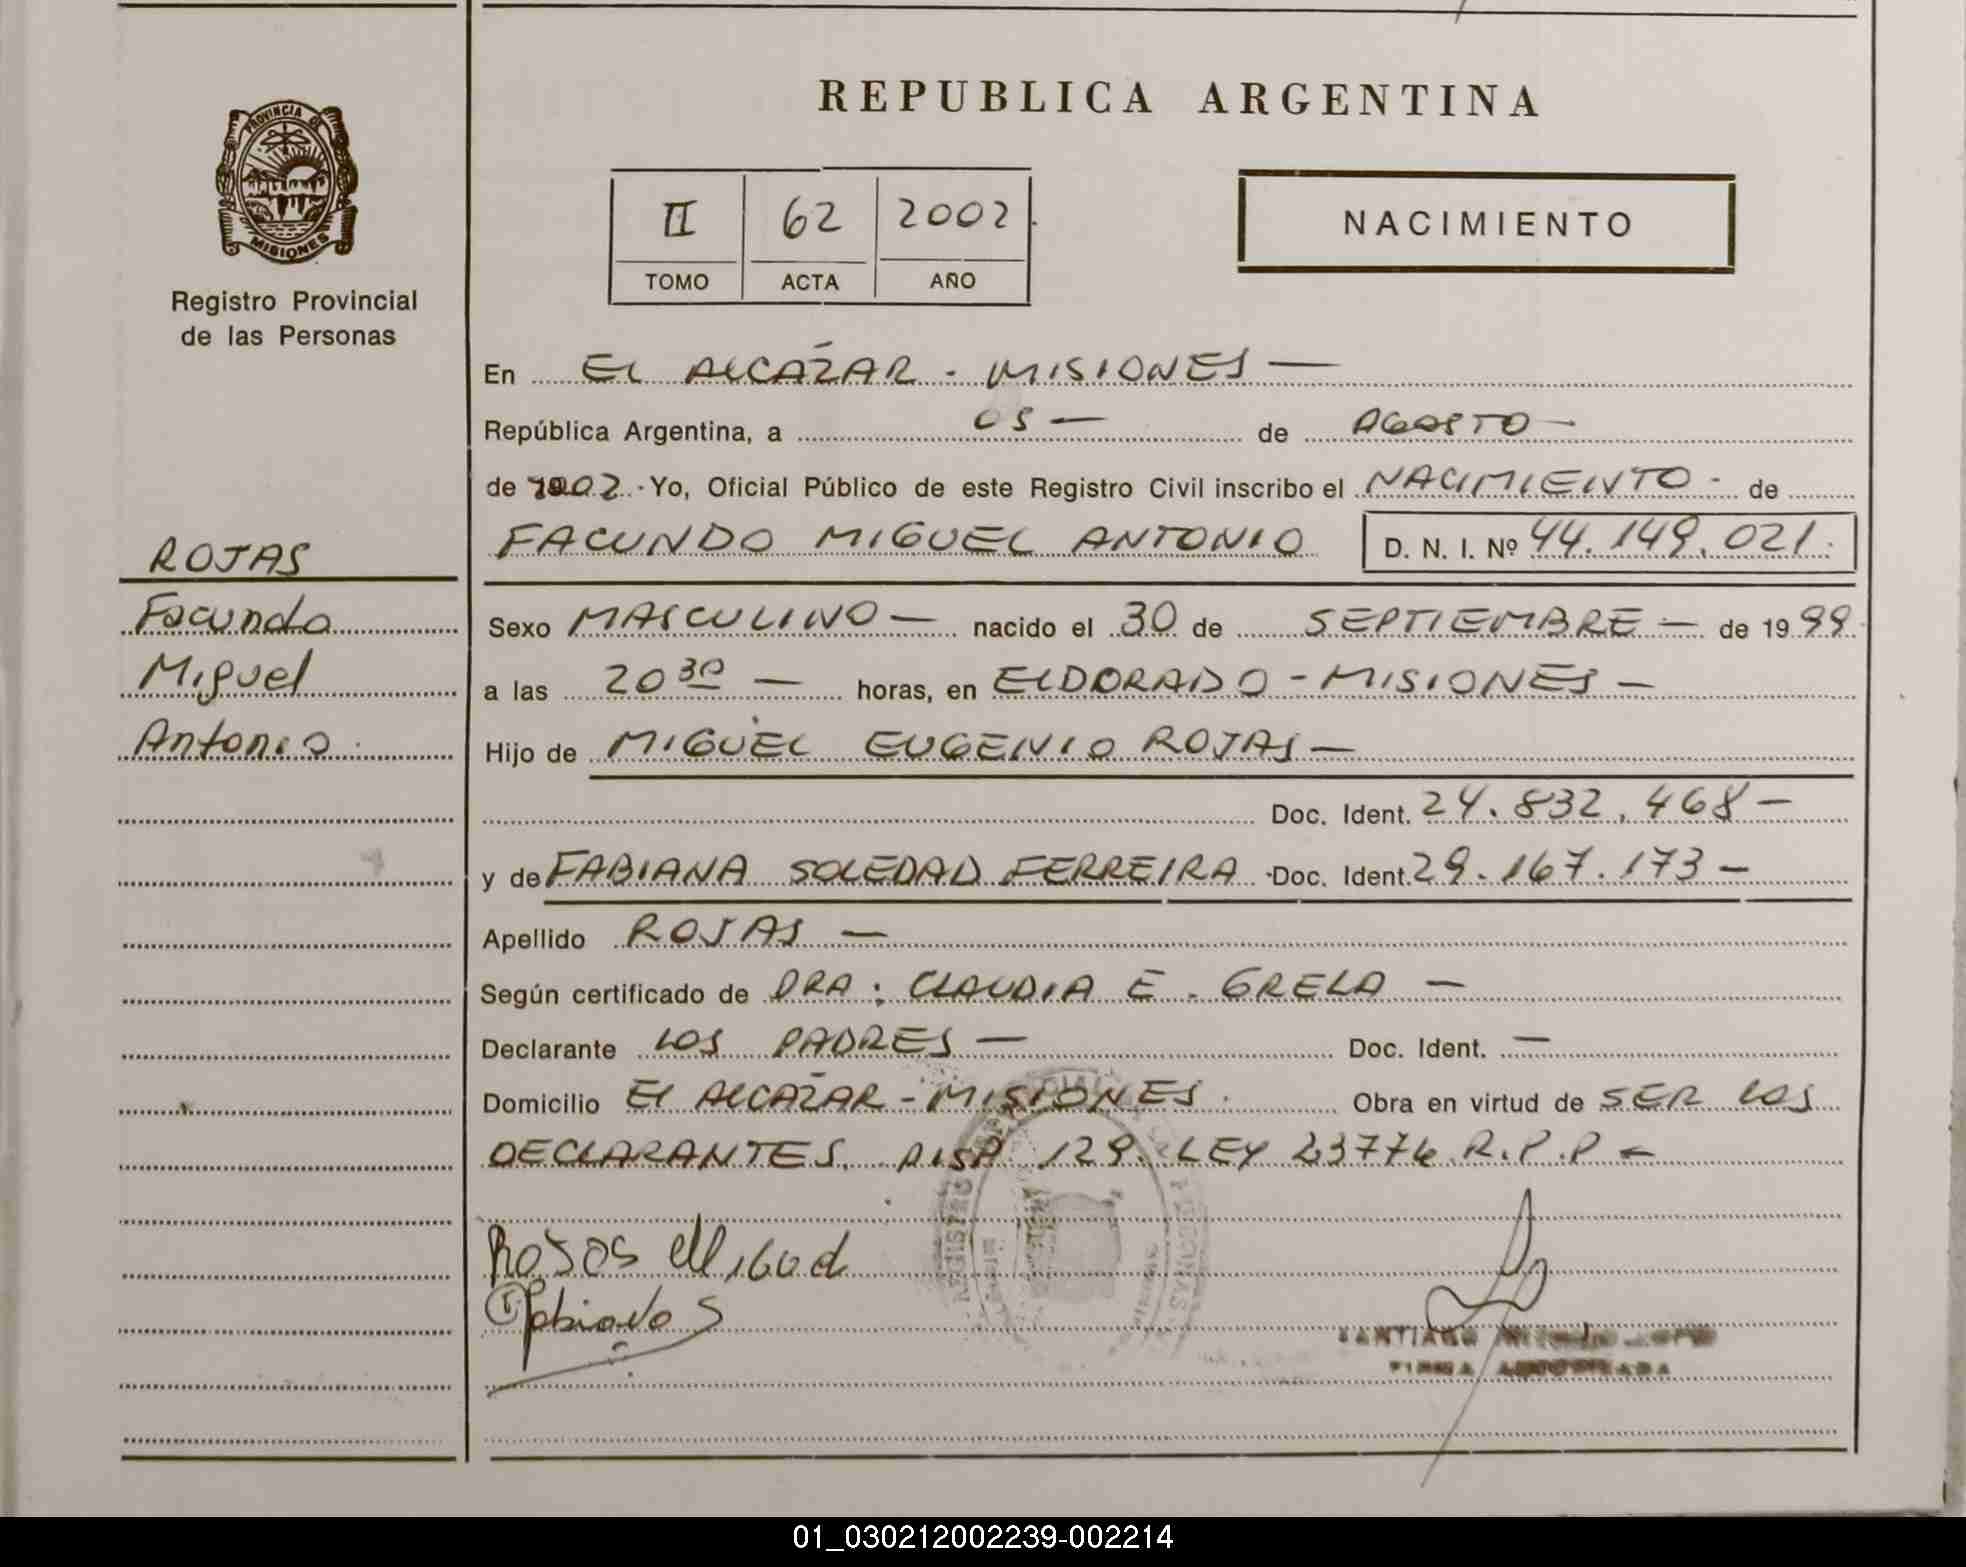 REPUBLICA ARGENTINA
PROVINCIA DE
MISIONES
Registro Provincial
de las Personas
II 62 2002
TOMO ACTA AÑO
NACIMIENTO
En EL ALCAZAR - MISIONES —
República Argentina, a 05 — de AGOSTO -
de 2002 Yo, Oficial Público de este Registro Civil inscribo el NACIMIENTO - de
FACUNDO MIGUEL ANTONIO D. N. I. Nº 44.149.021.
ROJAS
Facundo
Miguel
Antonio.
Sexo MASCULINO — nacido el 30 de SEPTIEMBRE — de 1999
a las 20 30 — horas, en ELDORADO - MISIONES -
Hijo de MIGUEL EUGENIO ROJAS —
Doc. Ident. 24.832.468 -
y de FABIANA SOLEDAD FERREIRA Doc. Ident. 29.167.173 -
Apellido ROJAS —
Según certificado de DRA: CLAUDIA E. GRELA —
Declarante LOS PADRES — Doc. Ident. —
Domicilio El ALCAZAR - MISIONES. Obra en virtud de SER LOS
DECLARANTES. DISP 129. LEY 23776 R.P.P -
Rojas
Fabiana S
SANTIAGO
FIRMA AUTORIZADA
01_030212002239-002214